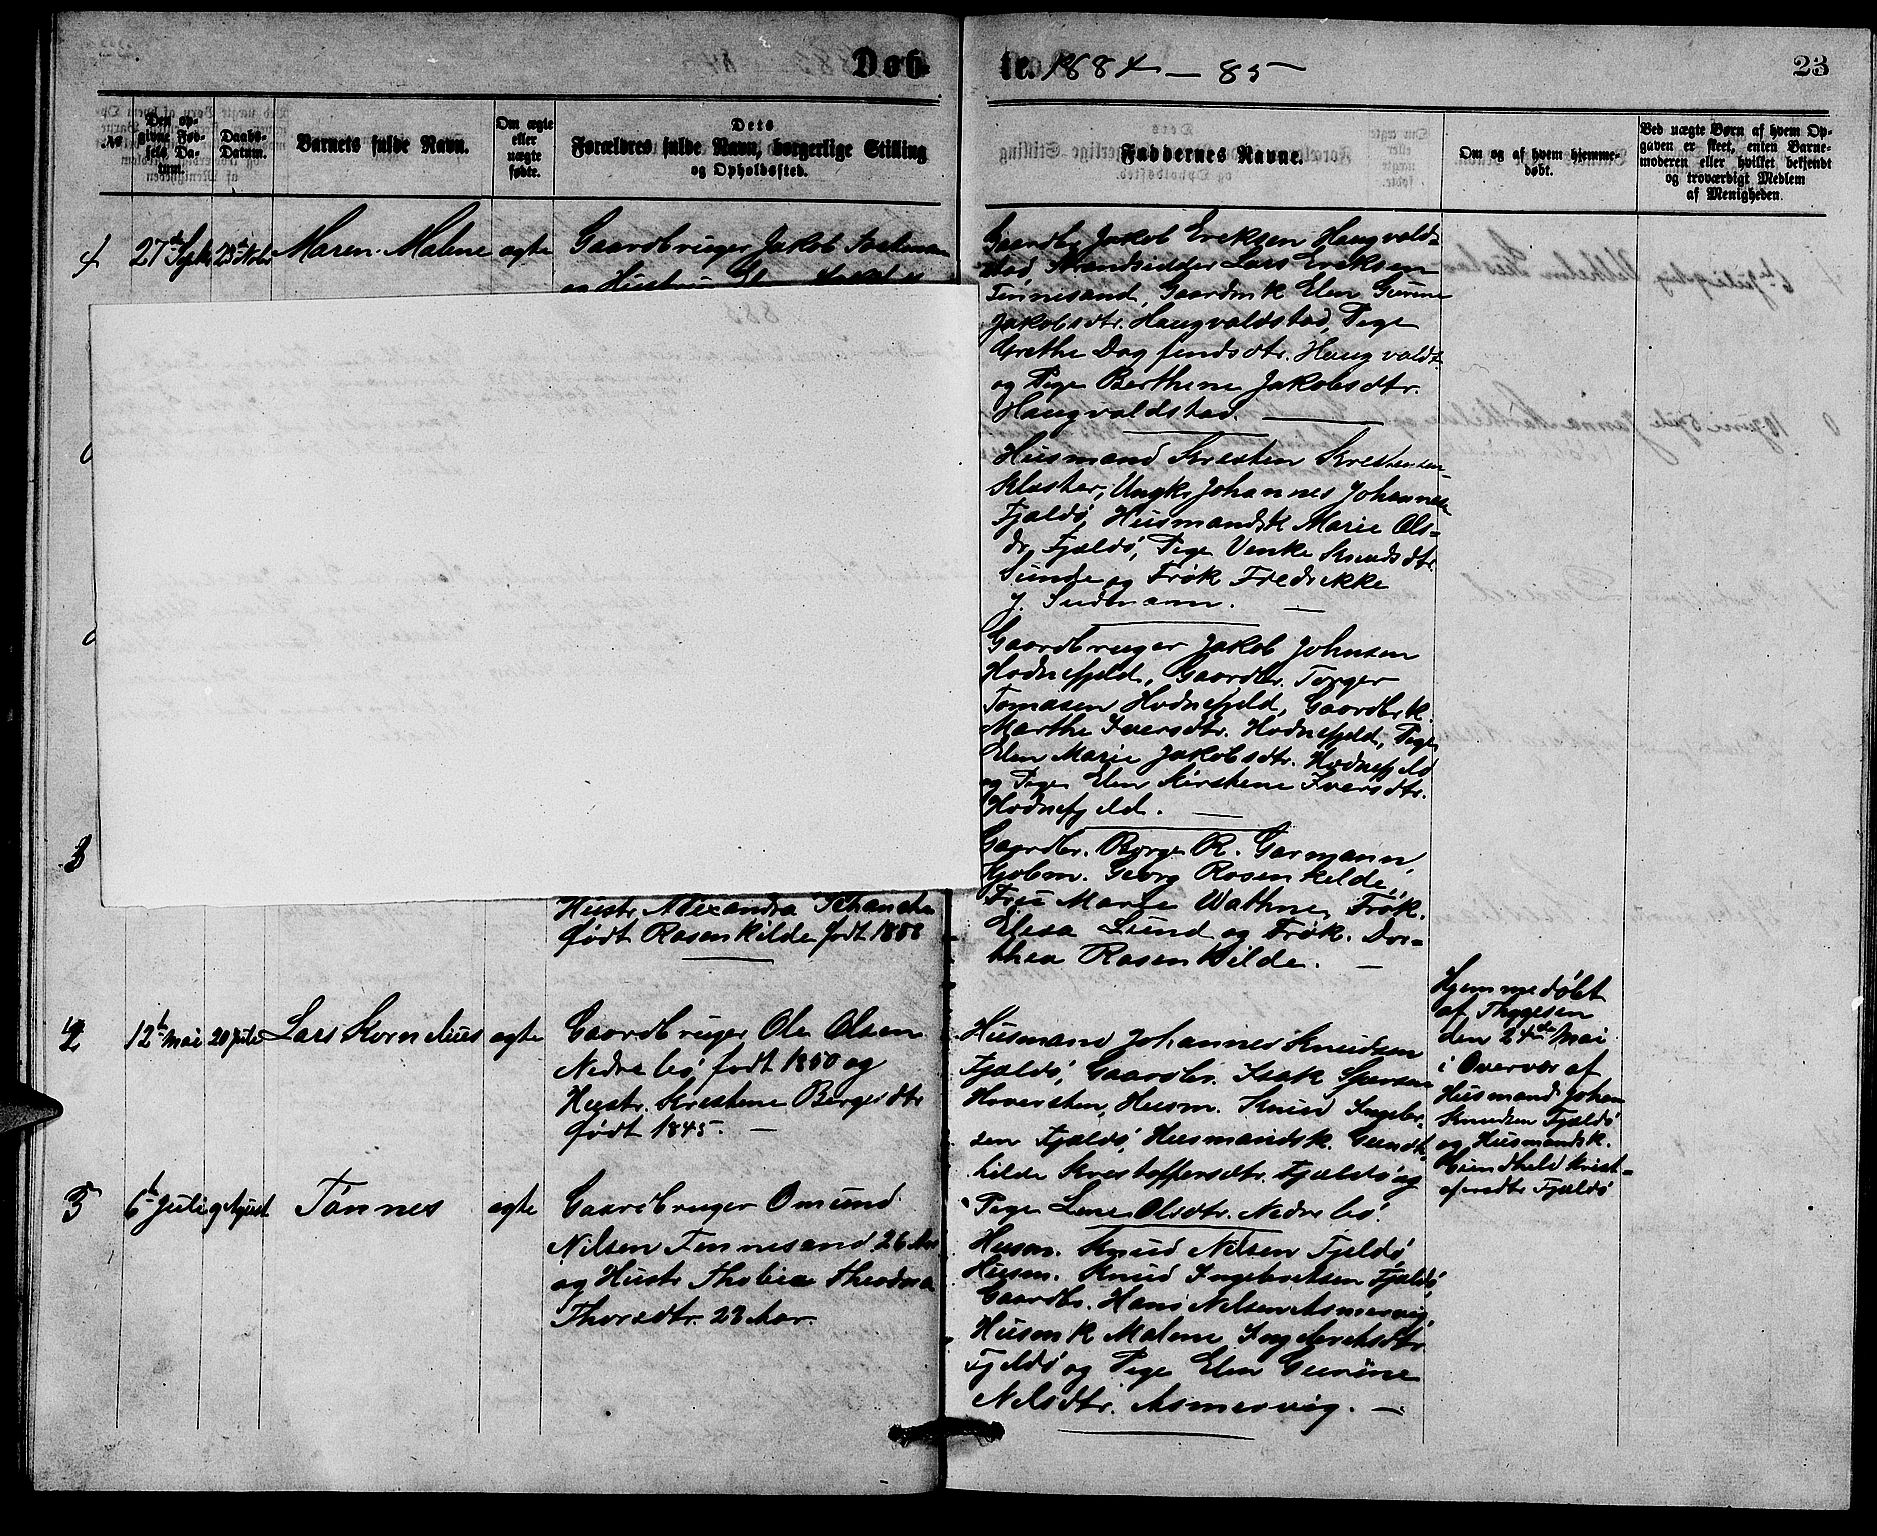 Døb-
te. 1884 – 85
23
№
Den op-
givne Fød-
sels Da-
tum.
Daabs-
Datum.
Barnets fulde Navn.
Om ægte
eller
uægte
født.
Dets
Forældres fulde Navn, borgerlige Stilling
og Opholdssted.
Faddernes Navne.
Om og af hvem hjemme-
døbt.
Ved uægte Børn af hvem Op-
gaven er skeet, enten Barne-
moderen eller hvilket bekjendt
og troværdigt Medlem
af Menigheden.
4
27de Septbr
Maren Malene
ægte
Gaardbruger Jakob
og Hustru
Gaardbr Jakob Eriksen Haugvald-
stad Strandsidder Lars Eriksen
Tennesand, Gaardmk Elen Gurine
Jakobsdtr. Haugvaldstad, Pige
Grethe Dagfindsdtr. Haugvaldst.
og Pige Berthine Jakobsdtr.
Haugvaldstad.
Husmand Kresten Krestensen
Kloster, Ungk. Johannes Johannesen
Fjeldø, Husmandsk Marie Ols-
dr. Fjældø, Pige Venke Knudsdtr.
Sunde og Frøk Fredrikke
J. Sudmann. –
Gaardbruger Jakob Johnsen
Hodnefjeld, Gaardbr. Torger
Tomasen Hodnefjeld, Gaardbr.k.
Marthe Iversdtr. Hodnefjeld, Pige
Elen Marie Jakobsdtr. Hodnefjeld
og Pige Elen Kirstene Iversdtr.
Hodnefjeld. –
3
Hustr. Alexandra Schanche
født Rosenkilde født 1858
Gaardbr. Børge R. Garmann,
Gjobm. Georg Rosenkilde,
Fru Marie Wathne, Frøk.
Elisa Lund og Frøk. Dor-
thea Rosenkilde. –
4
12te Mai
20 Jule
Lars Kornelius
ægte
Gaardbruger Ole Olsen
Nedrebø født 1850 og
Hustr. Kirstene Børgesdtr
født 1845. –
Husmand Johannes Knudsen
Fjældø, Gaardbr. Isak
Hoversten, Husm. Knud Ingebr-
sen Fjældø, Husmandsk. Gund-
hilde Kristoffersdtr. Fjældø og
Pige Lene Olsdtr. Nedrebø.
Hjemmedøbt
af Thygesen
den 24de Mai
i Overvær af
Husmand Johan
Knudsen Fjældø
og Husmandsk.
Gundhild Krist-
ofersdtr Fjældø
5
6te Juli
9 August
Tønnes
ægte
Gaardbruger Omund
Nilsen Tennesand 26 Aar
og Hustr Tholine Theodora
Thorsdtr. 22 Aar
Husm. Knud Nilsen Fjeldø,
Husm. Knud Ingebretsen Fjældø,
Gaardbr. Hans Nilsen Asmervig,
Husmk Malene Ingebretsdtr
Fjeldø og Pige Elen Gurine
Nilsdtr. Asmervig. –